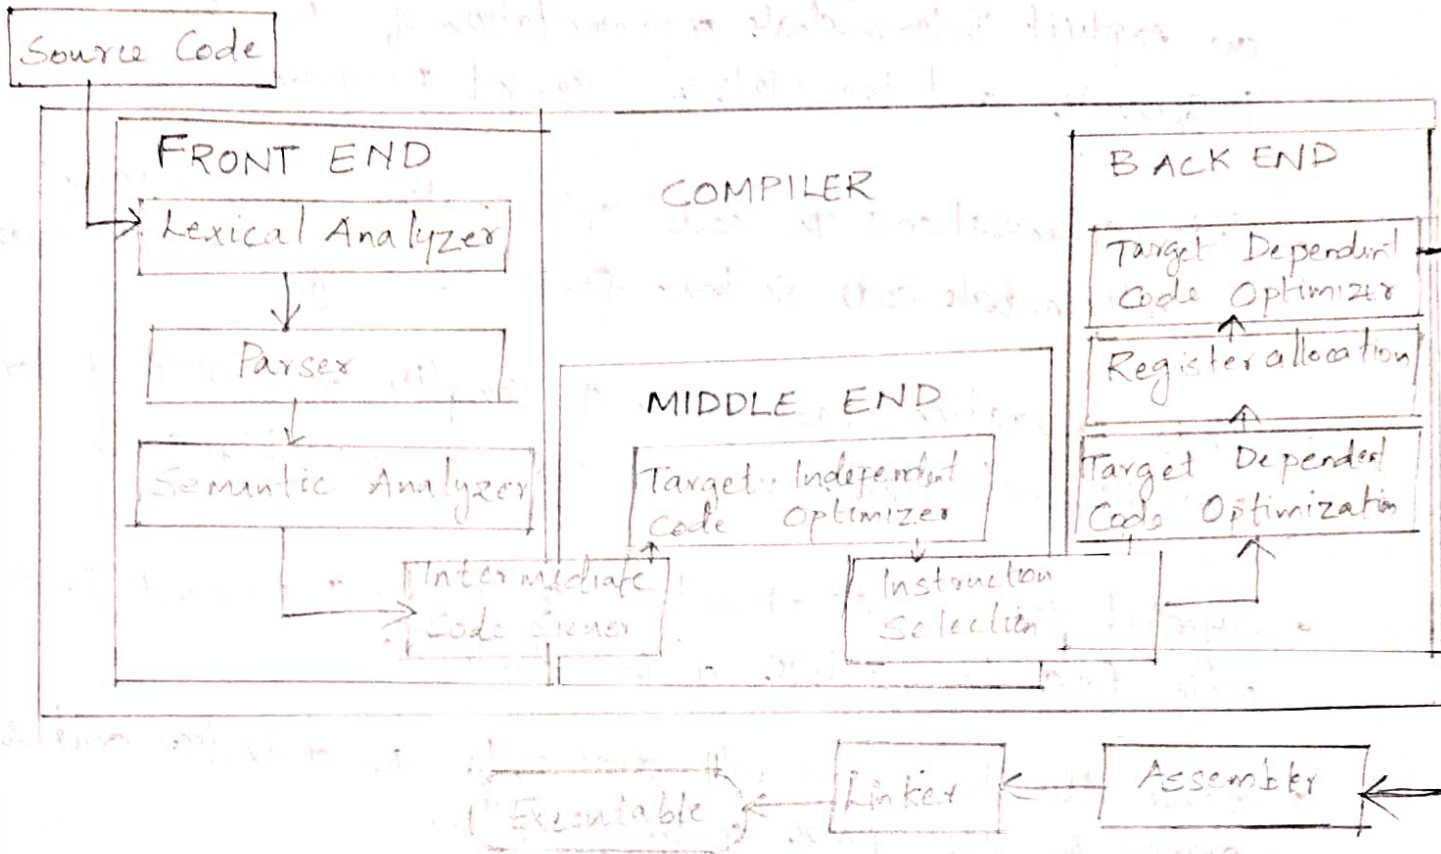 Source Code
FRONT END
Lexical Analyzer
Parser
Semantic Analyzer
Intermediate
Code
COMPILER
MIDDLE END
Target Independent
Code Optimizer
Instruction
Selection
BACK END
Target Dependent
Code Optimizer
Register allocation
Target Dependent
Code Optimization
Assembler
Linker
Executable